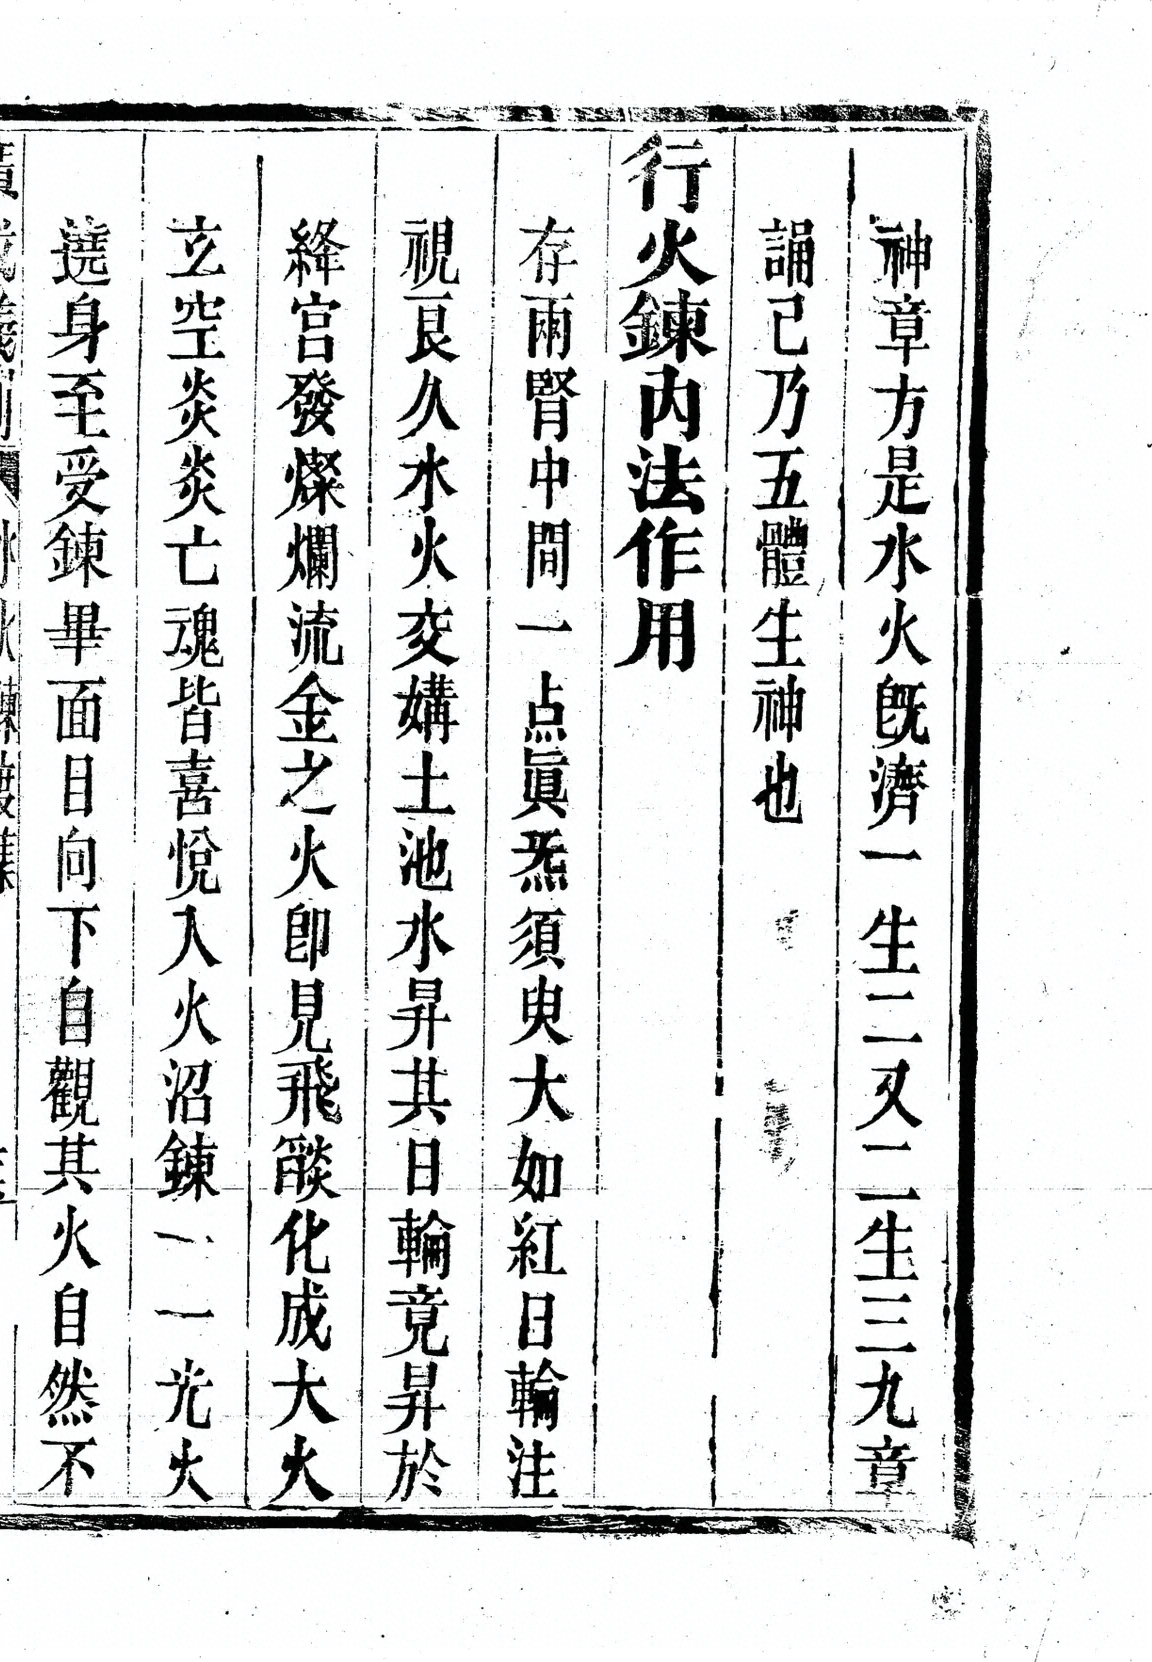 神章方是水火旣濟一生二又二生三九章
誦已乃五體生神也
行火鍊內法作用
存兩腎中間一点眞炁須臾大如紅日輪注
視良久水火交媾土池水昇其日輪竟昇於
絳宮發燦爛流金之火卽見飛燄化成大火
玄空炎炎亡魂皆喜悅入火沼鍊一一光火
遶身至受鍊畢面目向下自觀其火自然不